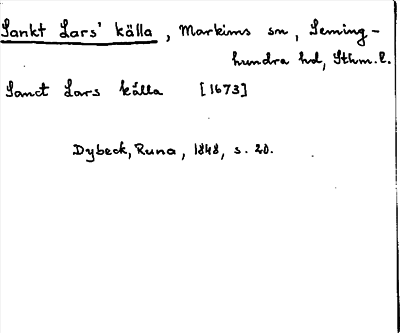 Sankt Lars' källa, Markims sn, Seming-
hundra hd, Sthm.l.
Sanct Lars källa [1673]
Dybeck, Runa, 1848, s. 20.